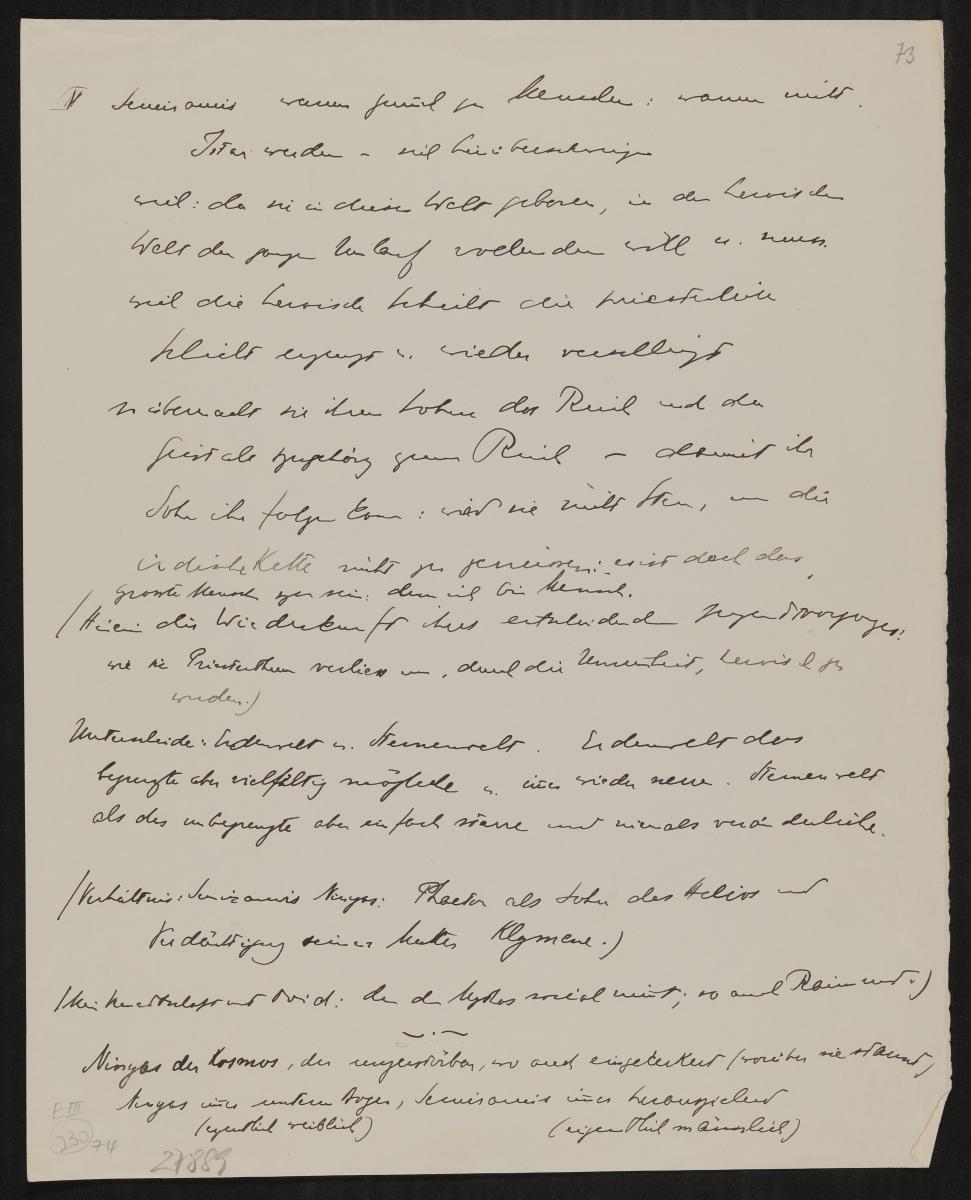 73
IV Semiramis warum zurück zu Menschen: warum nicht
Istar werden – sich hinüberschwingen
weil: da sie in dieser Welt geboren, in der heroischen
Welt den ganzen Umlauf vollenden will u. muss.
weil die heroische Schicht die priesterliche
Schicht ergänzt u. wieder verschlingt
so übermacht sie ihrem Sohne das Reich und den
Geist als zugehörig zum Reich – damit ihr
Sohn ihr folgen kann: wird sie nicht Stern, um die
irdische Kette nicht zu zerreissen: es ist doch das
grosste Mensch zu sein: denn ich bin Mensch.
(Hierin die Wiederkunft ihres entscheidenden Jugendvorganges:
wie sie Priesterthum verliess um, durch die Umarmung, heroisch zu
werden.)
Unterscheide: Erdenwelt u. Sternenwelt. Erdenwelt das
begrenzte aber vielfältig mögliche u. immer wieder neue. Sternenwelt
als das unbegrenzte aber einfach starre und niemals veränderliche.
(Verhältnis: Semiramis Ninyas: Phaeton als Sohn des Helios und
Verdächtigung seiner Mutter Klymene.)
(Mein und Ovid: der den Mythos social nimt; so auch Raimund.)
Ninyas der Kosmos, der unzerstörbar, wo auch eingekerkert (worüber sie staunt)
Ninyas immer unterm Bogen, Semiramis immer herausspielend
(eigentlich weiblich) (eigentlich männlich)
E III
230 74
27889